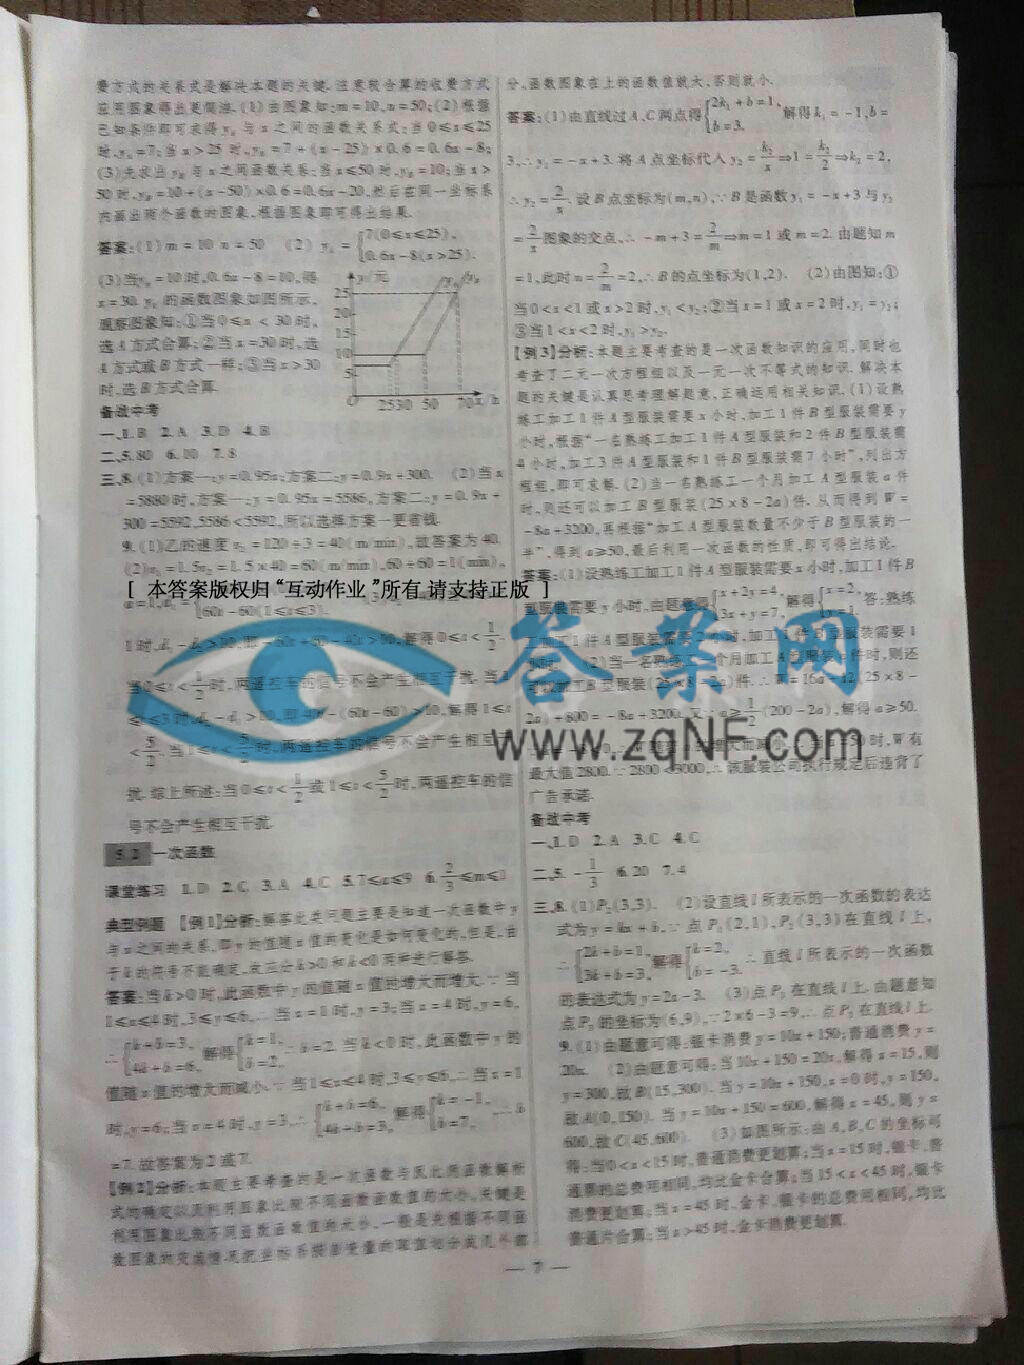 费方式的关系式是解决本题的关键.注意较合算的收费方式
应用图象得出更简洁.(1)由图象知:m=10,n=50;(2)根据
已知条件即可求得yA与x之间的函数关系式:当0≤x≤25
时,yA=7;当x>25时,yA=7+(x-25)×0.6=0.6x-8;
(3)先求出yB与x之间函数关系:当x≤50时,yB=10;当x>
50时,yB=10+(x-50)×0.6=0.6x-20,然后在同一坐标系
内画出两个函数的图象,根据图象即可得出结果.
答案:(1)m=10 n=50 (2)yA={7(0≤x≤25), 0.6x-8(x>25).
(3)当yA=10时,0.6x-8=10,得
x=30.yB的函数图象如图所示,
观察图象知:①当0≤x<30时,
选A方式合算;②当x=30时,选
A方式或B方式一样;③当x>30
时,选B方式合算.
y/元
25
20
15
10
5
O 2530 50 70 x/h
yA yB
备战中考
一、1.B 2.A 3.D 4.B
二、5.80 6.10 7.8
三、8.(1)方案一:y=0.95x;方案二:y=0.9x+300. (2)当x
=5880时,方案一:y=0.95x=5586,方案二:y=0.9x+
300=5592,5586<5592,所以选择方案一更省钱.
9.(1)乙的速度v2=120÷3=40(m/min),故答案为40.
(2)v1=1.5v2=1.5×40=60(m/min),60÷60=1(min),
[ 本答案版权归“互动作业”所有 请支持正版 ]
60x-60(1≤x≤3).
1时,d2-d1>10,即-60x+60-40x>10,解得0≤x<1/2.
当0≤x<1/2时,两遥控车的信号不会产生相互干扰.当
≤x≤3时,d2-d1>10,即40x-(60x-60)>10,解得1≤x
<5/2.当1≤x<5/2时,两遥控车的信号不会产生相互干
扰.综上所述:当0≤x<1/2或1≤x<5/2时,两遥控车的信
号不会产生相互干扰.
5.3 一次函数
课堂练习 1.D 2.C 3.A 4.C 5.7≤a≤9 6.2/3≤m≤1
典型例题 【例1】分析:解答此类问题主要是知道一次函数中y
与x之间的关系,即y的值随x值的变化是如何变化的,但是,由
于k的符号不能确定,故应分k>0和k<0两种进行解答.
答案:当k>0时,此函数中y的值随x值的增大而增大.∵当
1≤x≤4时,3≤y≤6,∴当x=1时,y=3;当x=4时,y=6,
∴{k+b=3, 4k+b=6, 解得{k=1, b=2, ∴b=2.当k<0时,此函数中y的
值随x值的增大而减小.∵当1≤x≤4时,3≤y≤6,∴当x=1
时,y=6;当x=4时,y=3,∴{k+b=6, 4k+b=3, 解得{k=-1, b=7, ∴b
=7.故答案为2或7.
【例2】分析:本题主要考查的是一次函数与反比例函数解析
式的确定以及利用图象比较不同函数函数值的大小.关键是
利用图象比较不同函数函数值的大小,一般是先根据不同函
分,函数图象在上的函数值就大,否则就小.
答案:(1)由直线过A、C两点得{2k1+b=1, b=3, 解得k1=-1,b=
3,∴y1=-x+3.将A点坐标代入y2=k2/x⇒1=k2/2⇒k2=2,
∴y2=2/x.设B点坐标为(m,n),∵B是函数y1=-x+3与y2
=2/x图象的交点,∴-m+3=2/m⇒m=1或m=2.由题知m
=1,此时n=2/m=2,∴B的点坐标为(1,2). (2)由图知:①
当0<x<1或x>2时,y1<y2;②当x=1或x=2时,y1=y2;
③当1<x<2时,y1>y2.
【例3】分析:本题主要考查的是一次函数知识的应用,同时也
考查了二元一次方程组以及一元一次不等式的知识.解决本
题的关键是认真思考理解题意,正确运用相关知识.(1)设熟
练工加工1件A型服装需要x小时,加工1件B型服装需要y
小时,根据“一名熟练工加工1件A型服装和2件B型服装需
4小时,加工3件A型服装和1件B型服装需7小时”,列出方
程组,即可求解.(2)当一名熟练工一个月加工A型服装a件
时,则还可以加工B型服装(25×8-2a)件.从而得到W=
-8a+3200,再根据“加工A型服装数量不少于B型服装的一
半”,得到a≥50,最后利用一次函数的性质,即可得出结论.
答案:(1)设熟练工加工1件A型服装需要x小时,加工1件B
型服装需要y小时,由题意得{x+2y=4, 3x+y=7, 解得{x=2, y=1. 答:熟练
工加工1件A型服装需要2小时,加工1件B型服装需要1
小时. (2)当一名熟练工一个月加工A型服装a件时,则还
可以加工B型服装(25×8-2a)件.∴W=16a+12(25×8-
2a)+800=-8a+3200.又∵a≥1/2(200-2a),解得a≥50.
最大值2800.∵2800<3000,∴该服装公司执行规定后违背了
广告承诺.
答案网
www.zqNF.com
备战中考
一、1.D 2.A 3.C 4.C
二、5.-1/3 6.20 7.4
三、8.(1)P2(3,3). (2)设直线l所表示的一次函数的表达
式为y=kx+b,∵点P1(2,1),P2(3,3)在直线l上,
∴{2k+b=1, 3k+b=3, 解得{k=2, b=-3. ∴直线l所表示的一次函数
的表达式为y=2x-3. (3)点P3在直线l上.由题意知
点P3的坐标为(6,9),∵2×6-3=9,∴点P3在直线l上.
9.(1)由题意可得:银卡消费y=10x+150;普通消费y=
20x. (2)由题意可得:当10x+150=20x,解得x=15,则
y=300,故B(15,300).当y=10x+150,x=0时,y=150,
故A(0,150).当y=10x+150=600,解得x=45,则y=
600,故C(45,600). (3)如图所示:由A,B,C的坐标可
得:当0<x<15时,普通消费更划算;当x=15时,银卡、普
通票的总费用相同,均比金卡合算;当15<x<45时,银卡
消费更划算;当x=45时,金卡、银卡的总费用相同,均比
普通片合算;当x>45时,金卡消费更划算.
— 7 —